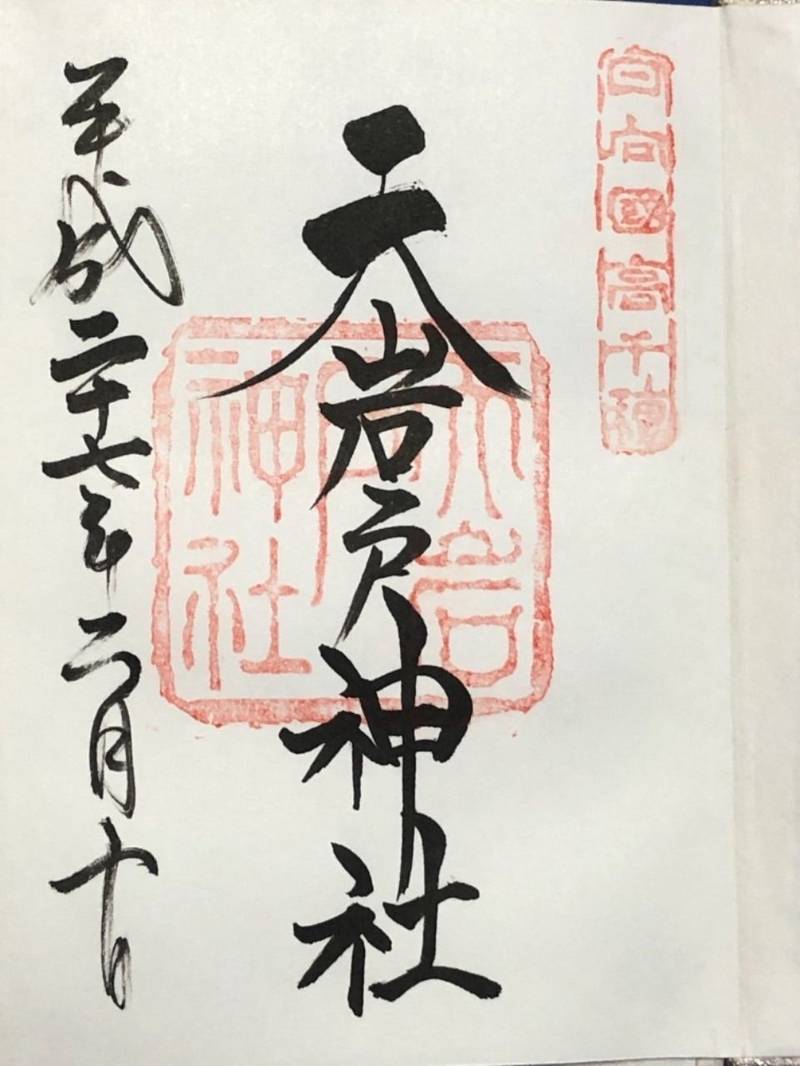 日向國高千穂
天岩戸神社
天岩戸神社
平成二十七年二月十日